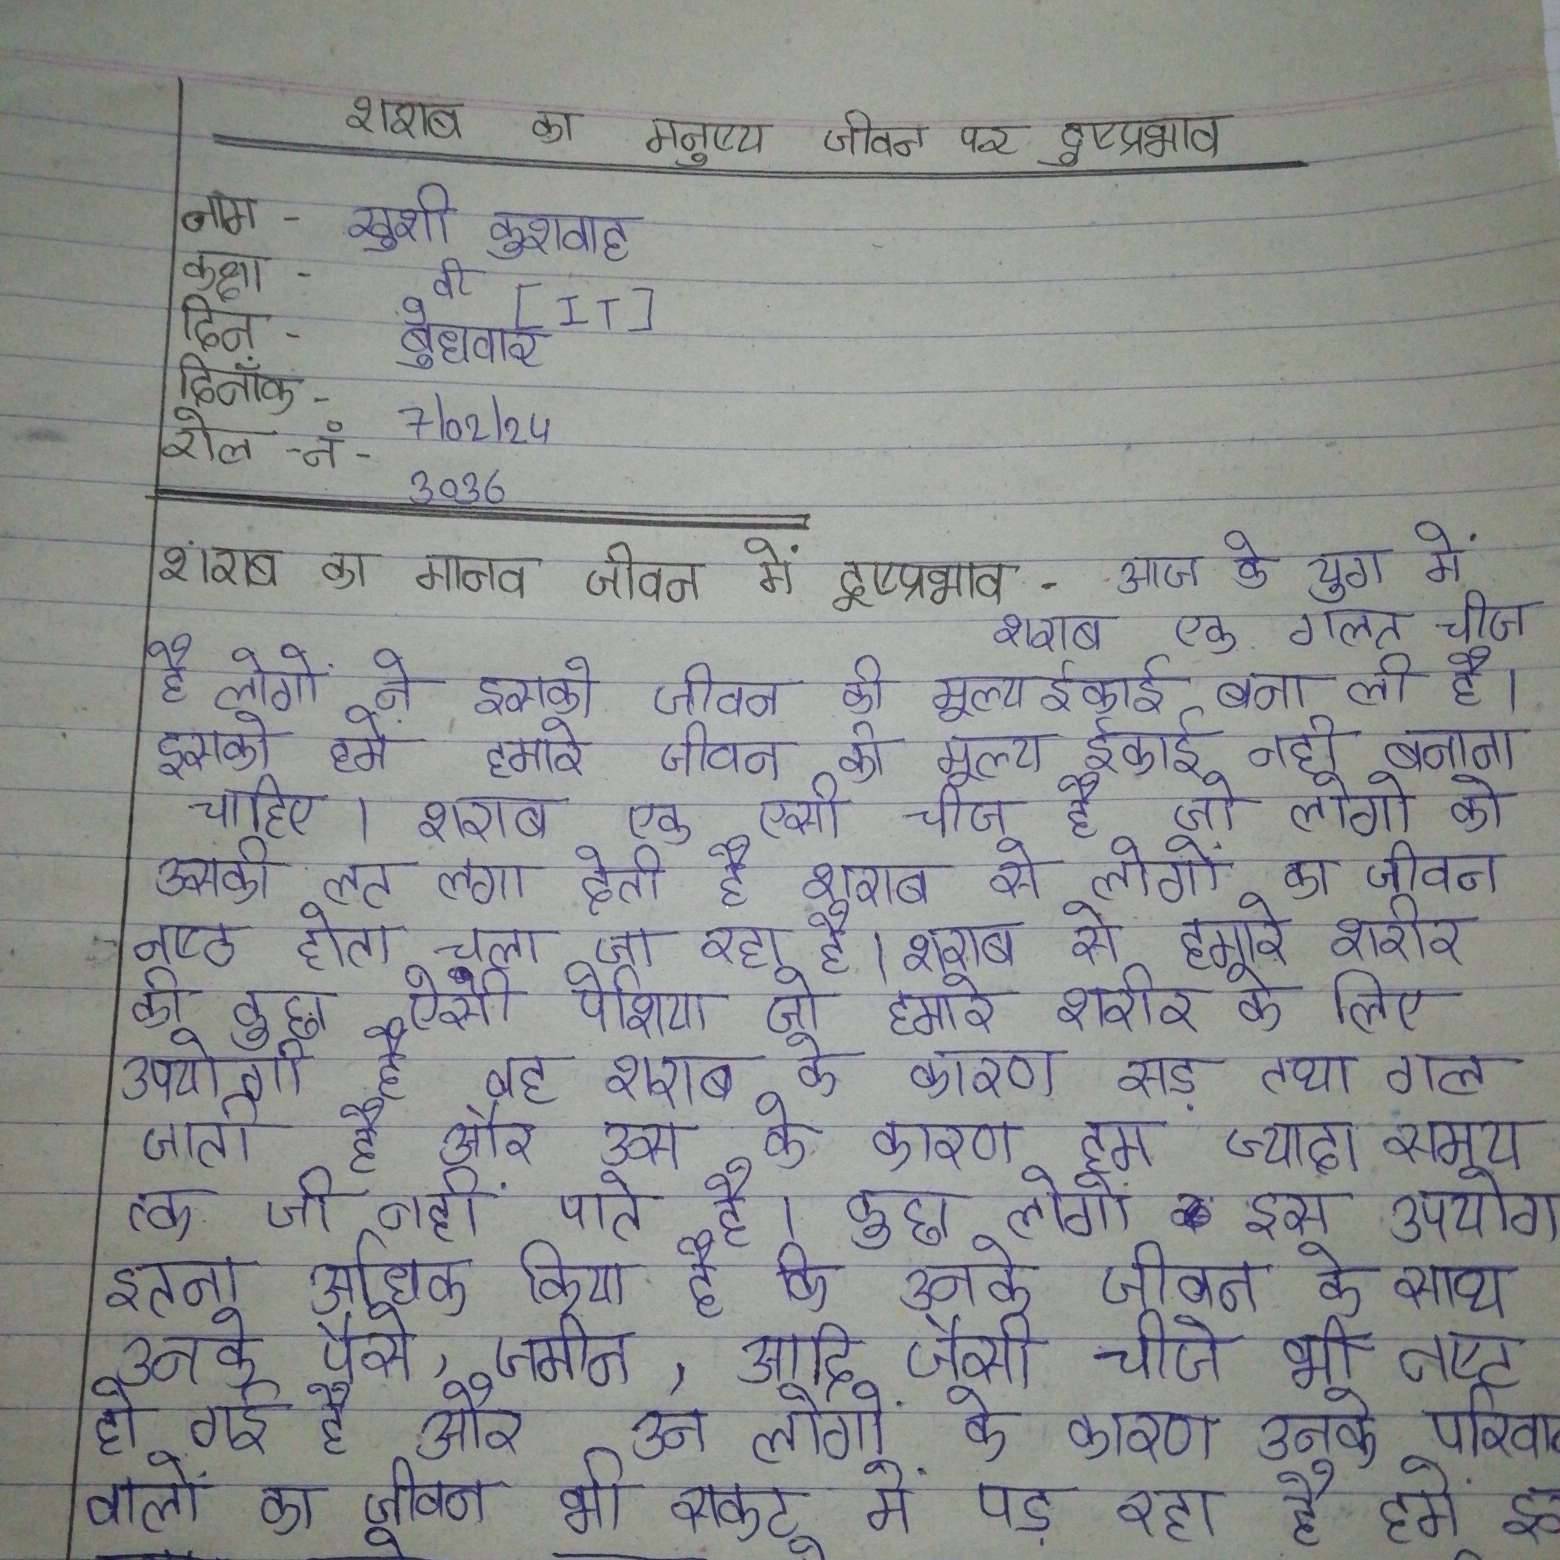 शराब का मनुष्य जीवन पर दुष्प्रभाव
नाम - खुशी कुशवाह
कक्षा - वी [IT]
दिन - बुधवार
दिनाँक - 7/02/24
रोल -नं - 3036
शंराब का मानव जीवन में दूष्प्रभाव - आज के युग में
शराब एक गलत चीज
है लोगों ने इसको जीवन की मूल्य ईकाई बना ली है।
इसको हमें हमारे जीवन को मूल्य ईकाई नही बनाना
चाहिए । शराब एक एसी चीज है जो लोगो को
उसकी लत लगा देती है शराब से लोगों का जीवन
नष्ठ होता चला जा रहा है। शराब से हमारे शरीर
की कुछ ऐसी पेशिया जो हमारे शरीर के लिए
उपयोगी है वह शराब के कारण सड़ तथा गल
जाती है और उस के कारण हम ज्यादा समय
तक जी नहीं पाते है। कुछ लोगों इस उपयोग
इतना अधिक किया है कि उनके जीवन के साथ
उनके पैसे, जमीन, आदि जैसी चीजे भी नष्ट
हो गई है और उन लोगों के कारण उनके परिवा
वालों का जीवन भी सकट में पड़ रहा है हमें